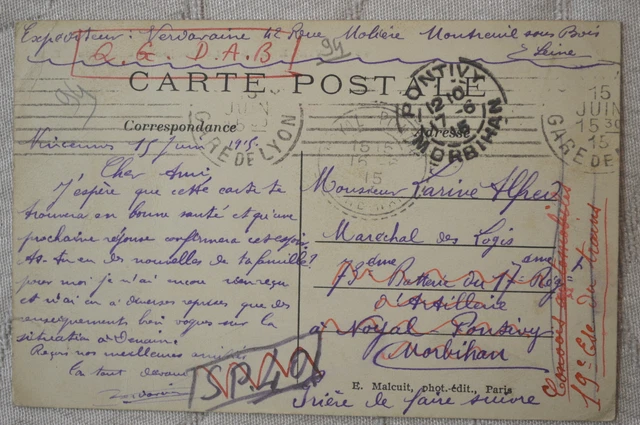 Expéditeur: Verdavaine 42 Rue Molière Montreuil sous Bois
Seine
Q.G. D.A.B
94
CARTE POSTALE
94
Correspondance
Adresse
15
JUIN
GARE DE LYON
PONTIVY
12 10
17-6
15
MORBIHAN
15
JUIN
15 30
GARE DE
Vincennes 15 Juin 1915.
Cher Ami
J'espère que cette carte te
trouvera en bonne santé et qu'une
prochaine réponse confirmera cet espoir
As-tu eu des nouvelles de ta famille?
pour moi je n'ai encore rien reçu
et n'ai eu à diverses reprises que des
renseignements bien vagues sur la
situation à Denain.
Reçois nos meilleures amitiés
Ton tout dévoué
Monsieur Carine Alfred
Maréchal des Logis
73ème Batterie du 17ème Rég
d'Artillerie
à Noyal Pontivy
Morbihan
SP 40
E. Malcuit, phot.-édit., Paris
Prière de faire suivre
Convois automobiles
19e Esc du trains